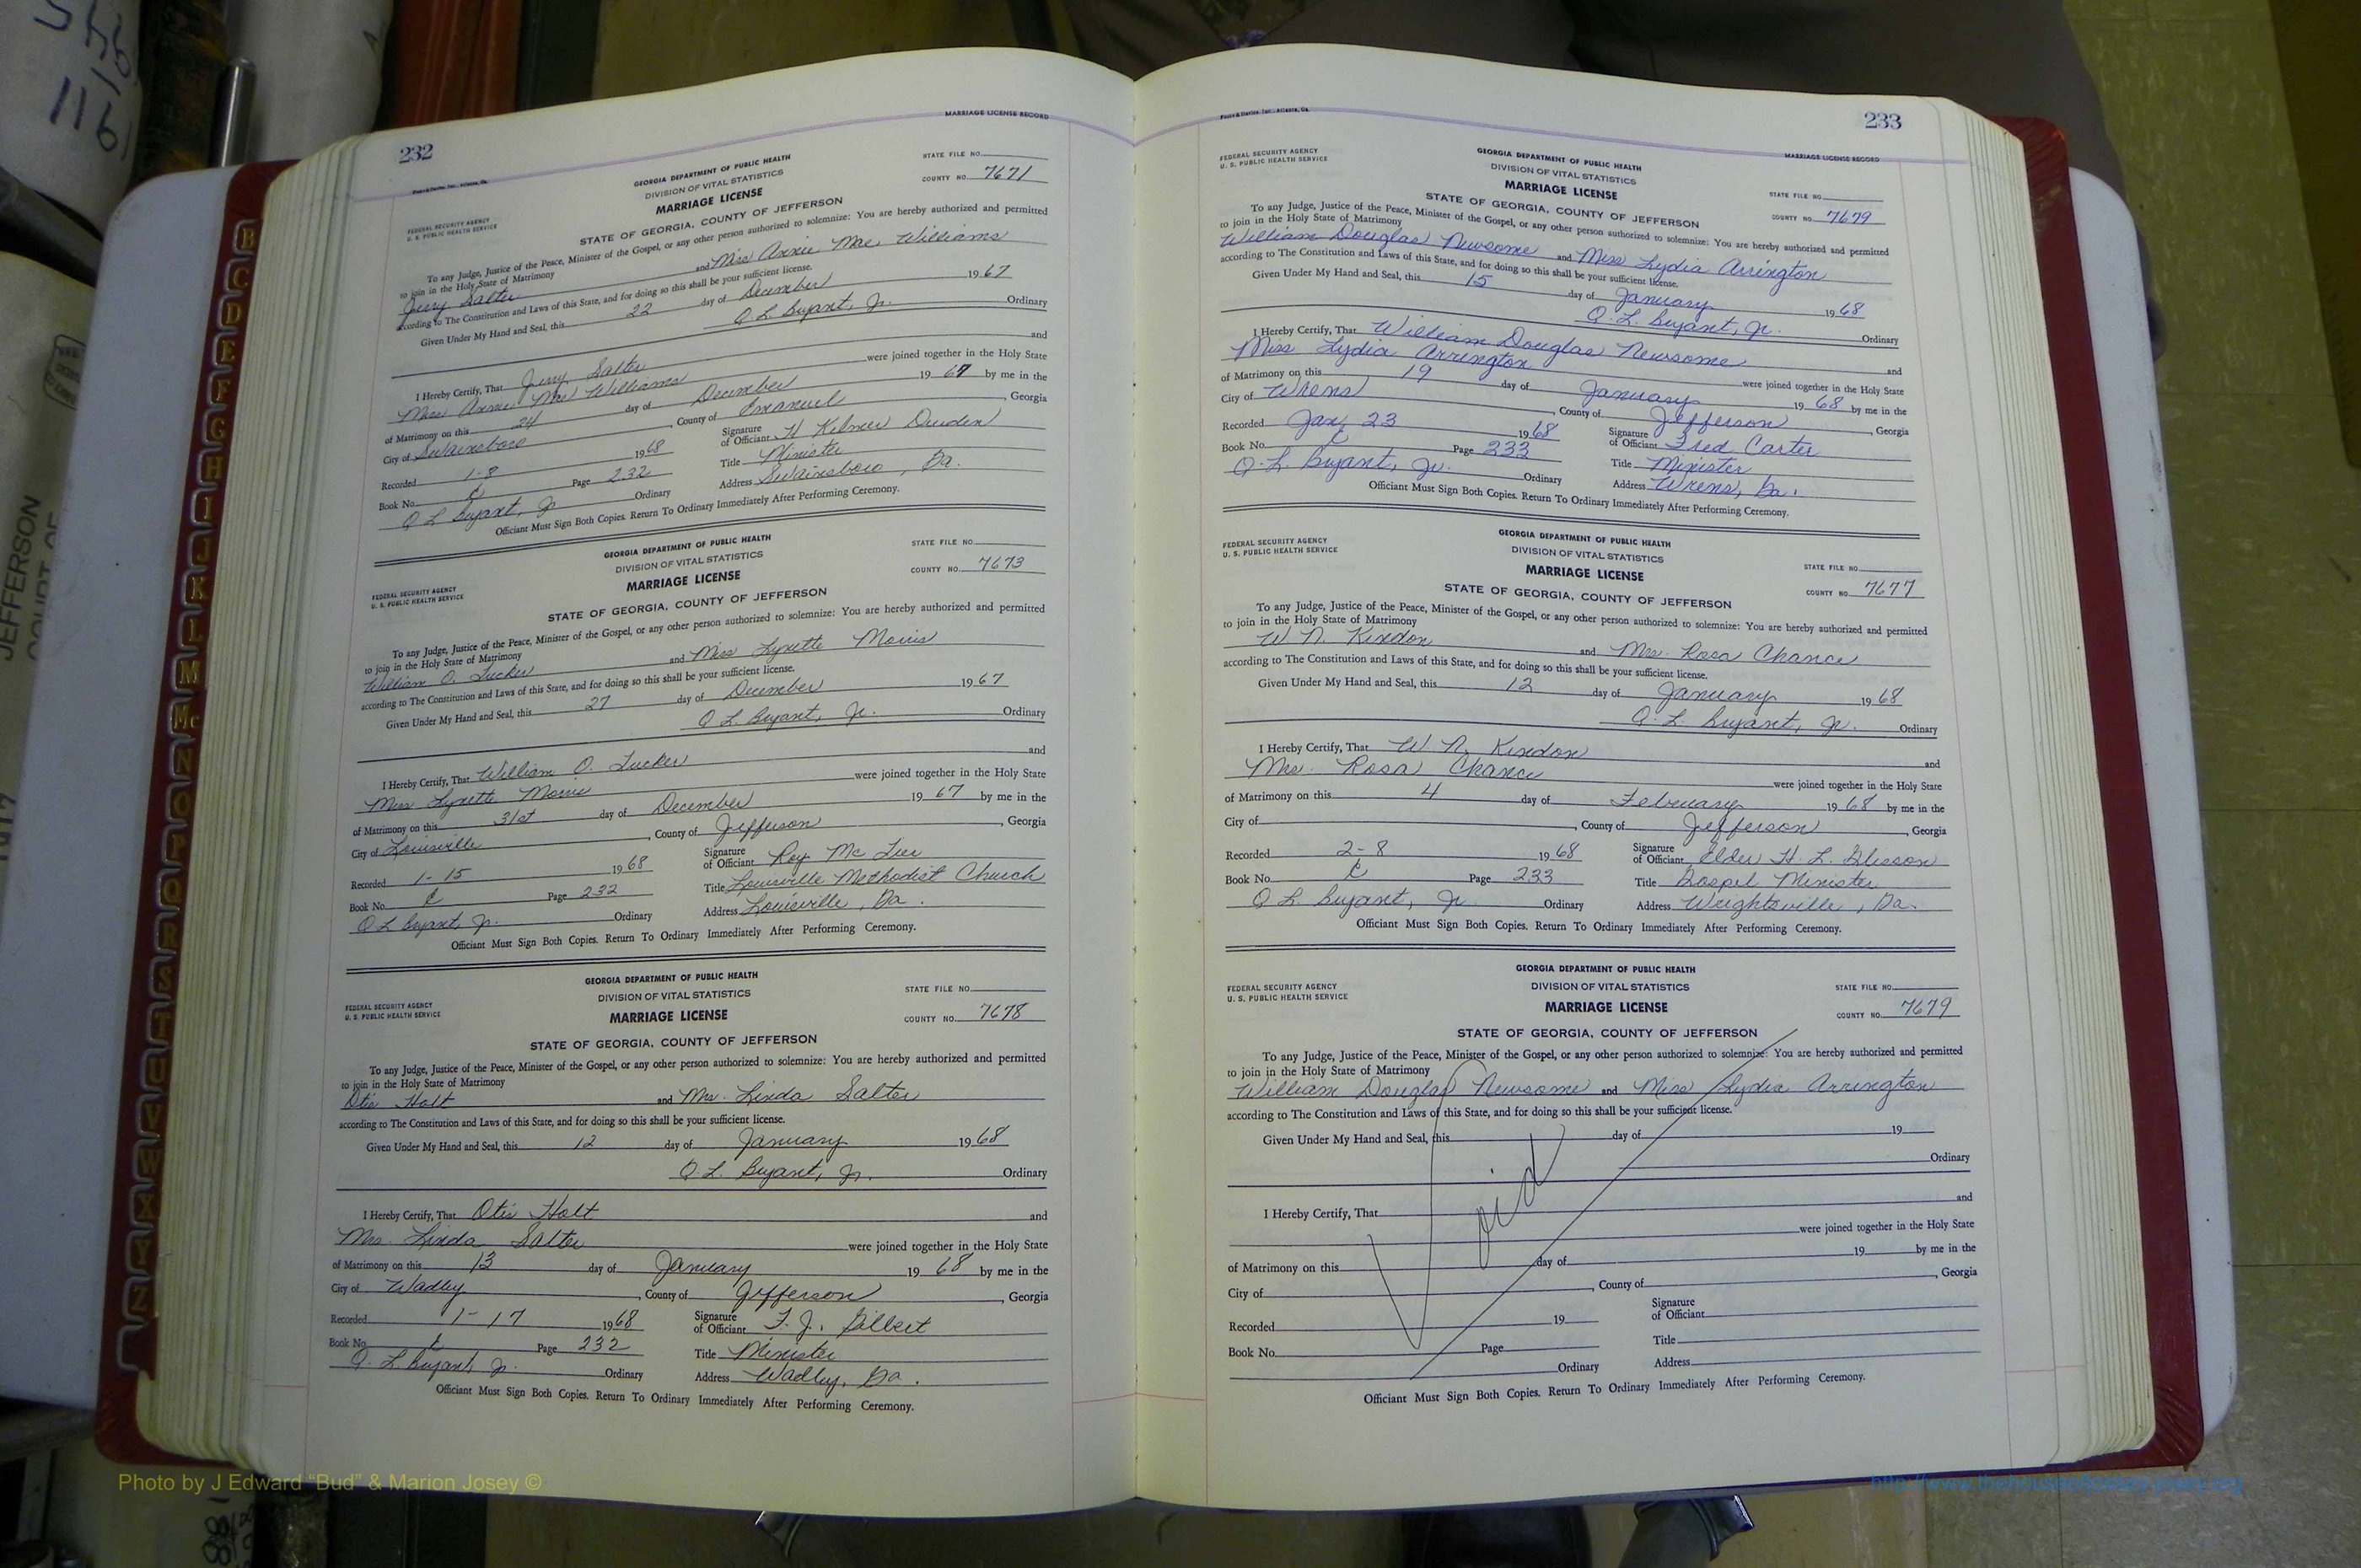 232
MARRIAGE LICENSE RECORD
FEDERAL SECURITY AGENCY
U. S. PUBLIC HEALTH SERVICE
GEORGIA DEPARTMENT OF PUBLIC HEALTH
DIVISION OF VITAL STATISTICS
MARRIAGE LICENSE
STATE OF GEORGIA, COUNTY OF JEFFERSON
STATE FILE NO.
COUNTY NO. 7671
To any Judge, Justice of the Peace, Minister of the Gospel, or any other person authorized to solemnize: You are hereby authorized and permitted
to join in the Holy State of Matrimony
Jerry Salter and Miss Annie Mae Williams
according to The Constitution and Laws of this State, and for doing so this shall be your sufficient license.
Given Under My Hand and Seal, this 22 day of December 1967
Q. L. Bryant, Jr. Ordinary
I Hereby Certify, That Jerry Salter and
Miss Annie Mae Williams were joined together in the Holy State
of Matrimony on this 24 day of December 1967 by me in the
City of Swainsboro, County of Emanuel, Georgia
Recorded 1-8 1968
Signature of Officiant H Kilmer
Book No. C Page 232
Title Minister
Q L Bryant, Jr Ordinary
Address Swainsboro, Ga.
Officiant Must Sign Both Copies. Return To Ordinary Immediately After Performing Ceremony.
FEDERAL SECURITY AGENCY
U. S. PUBLIC HEALTH SERVICE
GEORGIA DEPARTMENT OF PUBLIC HEALTH
DIVISION OF VITAL STATISTICS
MARRIAGE LICENSE
STATE OF GEORGIA, COUNTY OF JEFFERSON
STATE FILE NO.
COUNTY NO. 7673
To any Judge, Justice of the Peace, Minister of the Gospel, or any other person authorized to solemnize: You are hereby authorized and permitted
to join in the Holy State of Matrimony
William O. Tucker and Miss Lynette Morris
according to The Constitution and Laws of this State, and for doing so this shall be your sufficient license.
Given Under My Hand and Seal, this 27 day of December 1967
Q L Bryant, Jr. Ordinary
I Hereby Certify, That William O. Tucker and
Miss Lynette Morris were joined together in the Holy State
of Matrimony on this 31st day of December 1967 by me in the
City of Louisville, County of Jefferson, Georgia
Recorded 1-15 1968
Signature of Officiant Roy Mc Tier
Book No. C Page 232
Title Louisville Methodist Church
Q L Bryant, Jr. Ordinary
Address Louisville, Ga.
Officiant Must Sign Both Copies. Return To Ordinary Immediately After Performing Ceremony.
FEDERAL SECURITY AGENCY
U. S. PUBLIC HEALTH SERVICE
GEORGIA DEPARTMENT OF PUBLIC HEALTH
DIVISION OF VITAL STATISTICS
MARRIAGE LICENSE
STATE OF GEORGIA, COUNTY OF JEFFERSON
STATE FILE NO.
COUNTY NO. 7678
To any Judge, Justice of the Peace, Minister of the Gospel, or any other person authorized to solemnize: You are hereby authorized and permitted
to join in the Holy State of Matrimony
Otis Holt and Mrs. Linda Salter
according to The Constitution and Laws of this State, and for doing so this shall be your sufficient license.
Given Under My Hand and Seal, this 12 day of January 1968
Q. L. Bryant, Jr. Ordinary
I Hereby Certify, That Otis Holt and
Mrs. Linda Salter were joined together in the Holy State
of Matrimony on this 13 day of January 1968 by me in the
City of Wadley, County of Jefferson, Georgia
Recorded 1-17 1968
Signature of Officiant F. J. Gilbert
Book No. C Page 232
Title Minister
Q. L Bryant, Jr. Ordinary
Address Wadley, Ga.
Officiant Must Sign Both Copies. Return To Ordinary Immediately After Performing Ceremony.
233
MARRIAGE LICENSE RECORD
FEDERAL SECURITY AGENCY
U. S. PUBLIC HEALTH SERVICE
GEORGIA DEPARTMENT OF PUBLIC HEALTH
DIVISION OF VITAL STATISTICS
MARRIAGE LICENSE
STATE OF GEORGIA, COUNTY OF JEFFERSON
STATE FILE NO.
COUNTY NO. 7679
To any Judge, Justice of the Peace, Minister of the Gospel, or any other person authorized to solemnize: You are hereby authorized and permitted
to join in the Holy State of Matrimony
William Douglas Newsome and Miss Lydia Arrington
according to The Constitution and Laws of this State, and for doing so this shall be your sufficient license.
Given Under My Hand and Seal, this 15 day of January 1968
Q. L. Bryant, Jr. Ordinary
I Hereby Certify, That William Douglas Newsome and
Miss Lydia Arrington were joined together in the Holy State
of Matrimony on this 19 day of January 1968 by me in the
City of Wrens, County of Jefferson, Georgia
Recorded Jan, 23 1968
Signature of Officiant Fred Carter
Book No. C Page 233
Title Minister
Q. L. Bryant, Jr. Ordinary
Address Wrens, Ga.
Officiant Must Sign Both Copies. Return To Ordinary Immediately After Performing Ceremony.
FEDERAL SECURITY AGENCY
U. S. PUBLIC HEALTH SERVICE
GEORGIA DEPARTMENT OF PUBLIC HEALTH
DIVISION OF VITAL STATISTICS
MARRIAGE LICENSE
STATE OF GEORGIA, COUNTY OF JEFFERSON
STATE FILE NO.
COUNTY NO. 7677
To any Judge, Justice of the Peace, Minister of the Gospel, or any other person authorized to solemnize: You are hereby authorized and permitted
to join in the Holy State of Matrimony
W. N. Kindon and Mrs. Rosa Chance
according to The Constitution and Laws of this State, and for doing so this shall be your sufficient license.
Given Under My Hand and Seal, this 12 day of January 1968
Q. L. Bryant, Jr. Ordinary
I Hereby Certify, That W N. Kindon and
Mrs. Rosa Chance were joined together in the Holy State
of Matrimony on this 4 day of February 1968 by me in the
City of , County of Jefferson, Georgia
Recorded 2-8 1968
Signature of Officiant Elder H. L. Glisson
Book No. C Page 233
Title Gospel Minister
Q L Bryant, Jr. Ordinary
Address Wrightsville, Ga.
Officiant Must Sign Both Copies. Return To Ordinary Immediately After Performing Ceremony.
FEDERAL SECURITY AGENCY
U. S. PUBLIC HEALTH SERVICE
GEORGIA DEPARTMENT OF PUBLIC HEALTH
DIVISION OF VITAL STATISTICS
MARRIAGE LICENSE
STATE OF GEORGIA, COUNTY OF JEFFERSON
STATE FILE NO.
COUNTY NO. 7679
To any Judge, Justice of the Peace, Minister of the Gospel, or any other person authorized to solemnize: You are hereby authorized and permitted
to join in the Holy State of Matrimony
William Douglas Newsome and Miss Lydia Arrington
according to The Constitution and Laws of this State, and for doing so this shall be your sufficient license.
Given Under My Hand and Seal, this day of 19
Ordinary
Void
I Hereby Certify, That and
were joined together in the Holy State
of Matrimony on this day of 19 by me in the
City of , County of , Georgia
Recorded 19
Signature of Officiant
Book No. Page
Title
Ordinary
Address
Officiant Must Sign Both Copies. Return To Ordinary Immediately After Performing Ceremony.
B
C
D
E
F
G
H
I
J
K
L
M
Mc
N
O
P
Q
R
S
T
U
V
W
X
Y
Z
JEFFERSON
Photo by J Edward “Bud” & Marion Josey ©